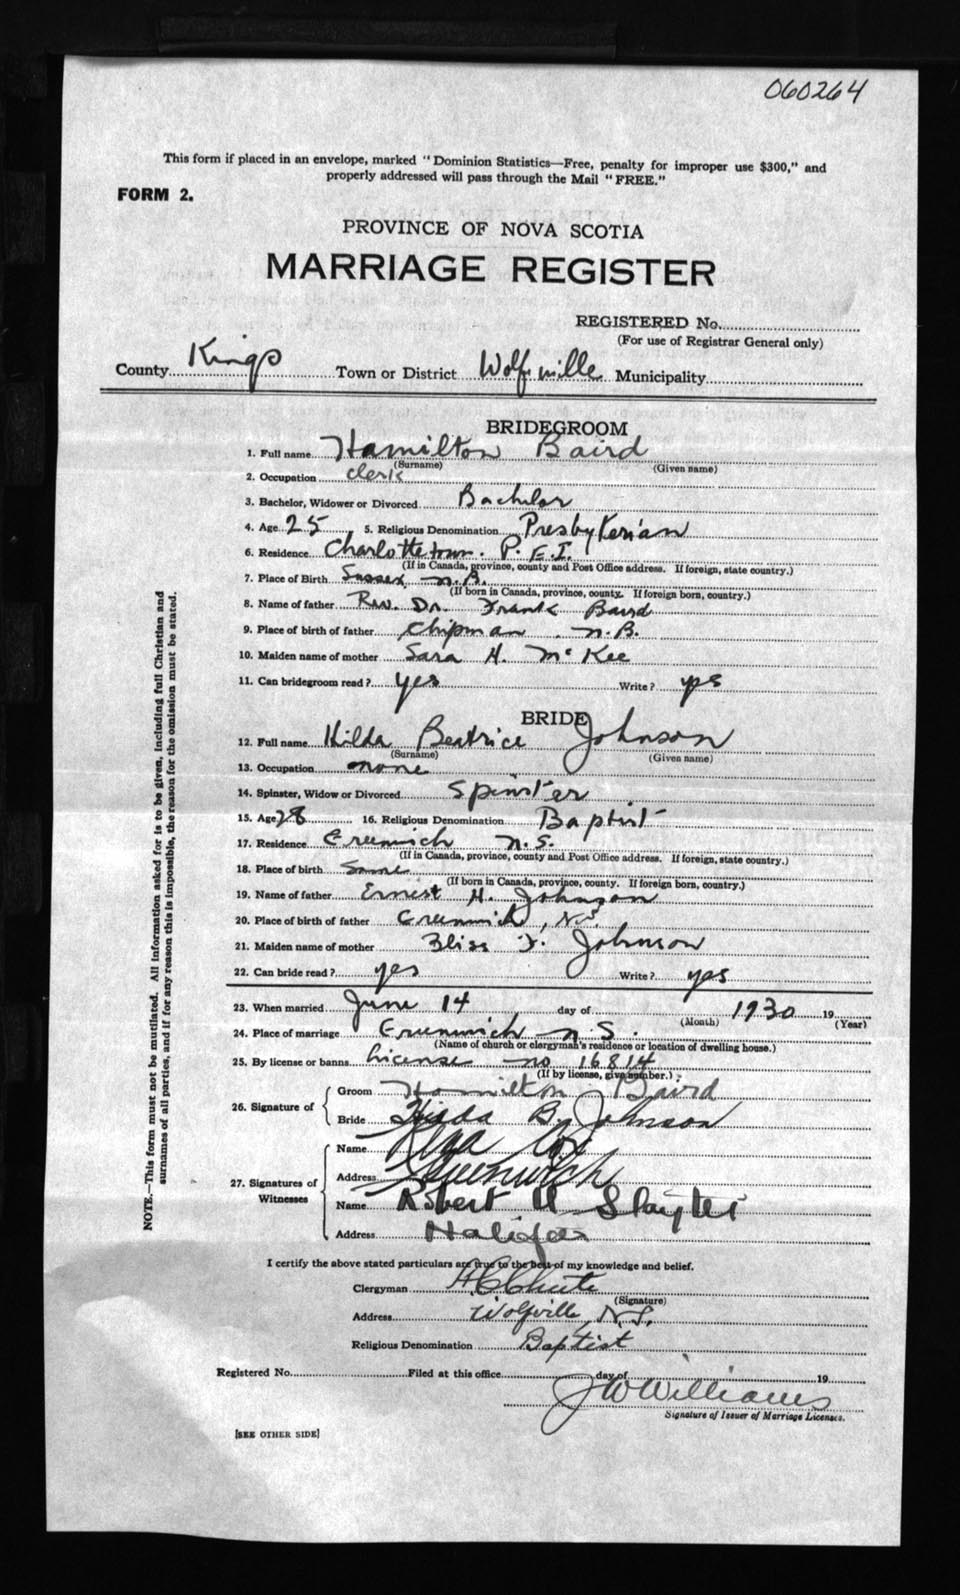 060264
This form if placed in an envelope, marked "Dominion Statistics—Free, penalty for improper use $300," and
properly addressed will pass through the Mail "FREE."
FORM 2.
PROVINCE OF NOVA SCOTIA
MARRIAGE REGISTER
REGISTERED No.
(For use of Registrar General only)
County Kings Town or District Wolfville Municipality
BRIDEGROOM
1. Full name Hamilton Baird
(Surname) (Given name)
2. Occupation clerk
3. Bachelor, Widower or Divorced Bachelor
4. Age 25 5. Religious Denomination Presbyterian
6. Residence Charlottetown. P.E.I.
(If in Canada, province, county and Post Office address. If foreign, state country.)
7. Place of Birth Sussex N.B.
(If born in Canada, province, county. If foreign born, country.)
8. Name of father Rev. Dr. Frank Baird
9. Place of birth of father Chipman N.B.
10. Maiden name of mother Sara H. McKee
11. Can bridegroom read? yes Write? yes
BRIDE
12. Full name Hilda Beatrice Johnson
(Surname) (Given name)
13. Occupation none
14. Spinster, Widow or Divorced Spinster
15. Age 28 16. Religious Denomination Baptist
17. Residence Greenwich N.S.
(If in Canada, province, county and Post Office address. If foreign, state country.)
18. Place of birth Same
(If born in Canada, province, county. If foreign born, country.)
19. Name of father Ernest H. Johnson
20. Place of birth of father Greenwich, N.S.
21. Maiden name of mother Bliss F. Johnson
22. Can bride read? yes Write? yes
23. When married June 14 day of 1930 19
(Month) (Year)
24. Place of marriage Greenwich N.S.
(Name of church or clergyman's residence or location of dwelling house.)
25. By license or banns License no 16814
(If by license, give number.)
26. Signature of Groom Hamilton Baird
Bride Hilda B. Johnson
27. Signatures of Witnesses
Name Cox
Address Greenwich
Name Robert Slayter
Address Halifax
I certify the above stated particulars are true to the best of my knowledge and belief.
Clergyman A C Chute
(Signature)
Address Wolfville, N.S.
Religious Denomination Baptist
Registered No. Filed at this office day of 19
J W Williams
Signature of Issuer of Marriage Licenses.
[SEE OTHER SIDE]
NOTE.—This form must not be mutilated. All information asked for is to be given, including full Christian and
surnames of all parties, and if for any reason this is impossible, the reason for the omission must be stated.